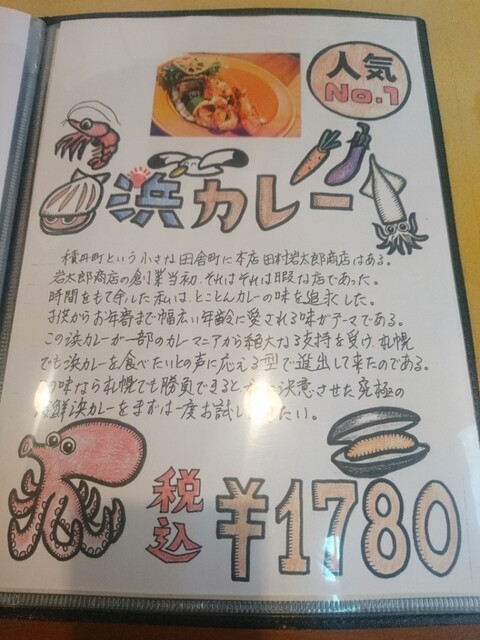 人気
No.1
浜カレー
積丹町という小さな田舎町に本店 田村岩太郎商店はある。
岩太郎商店の創業当初、それはそれは暇な店であった。
時間をもて余した私は、とことんカレーの味を追求した。
子供からお年寄まで幅広い年齢に愛される味がテーマである。
この浜カレーが一部のカレーマニアから絶大なる支持を受け、札幌
でも浜カレーを食べたいとの声に応える型で進出して来たのである。
の味なら札幌でも勝負できると 決意させた究極の
鮮浜カレーをまずは一度お試し たい。
税込
¥1780